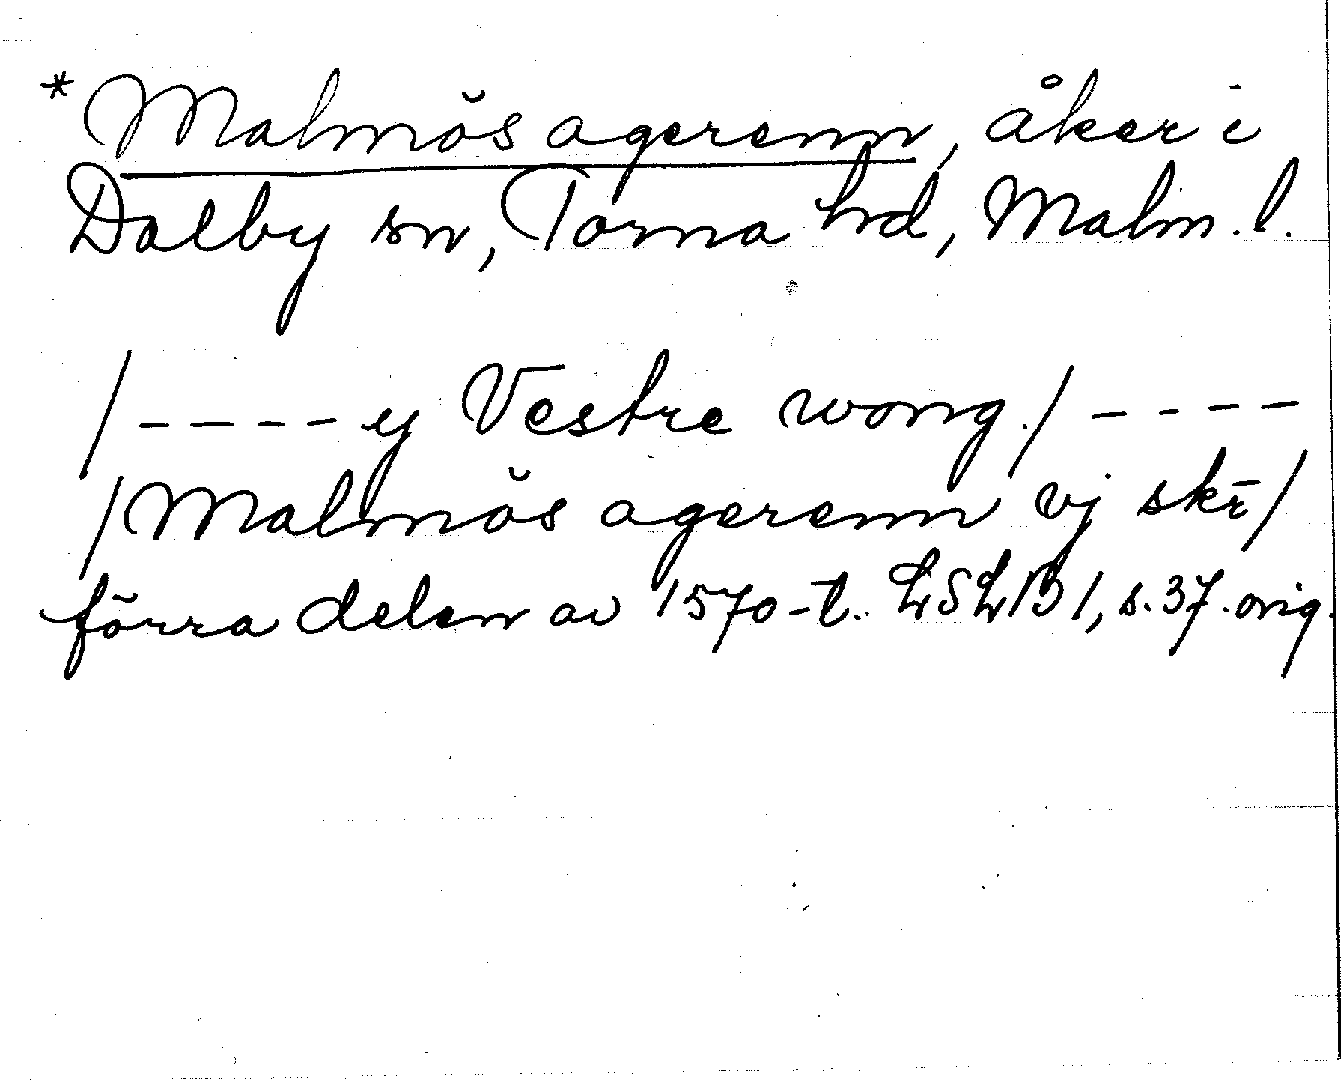 *Malmŏs agerenn, åker i
Dalby sn, Torna hd, Malm. l.
/-----ij Vestre wong./----
/Malmŏs agerenn vj skr̄/
förra delen av 1570-t. LSLB 1, s. 37. orig.